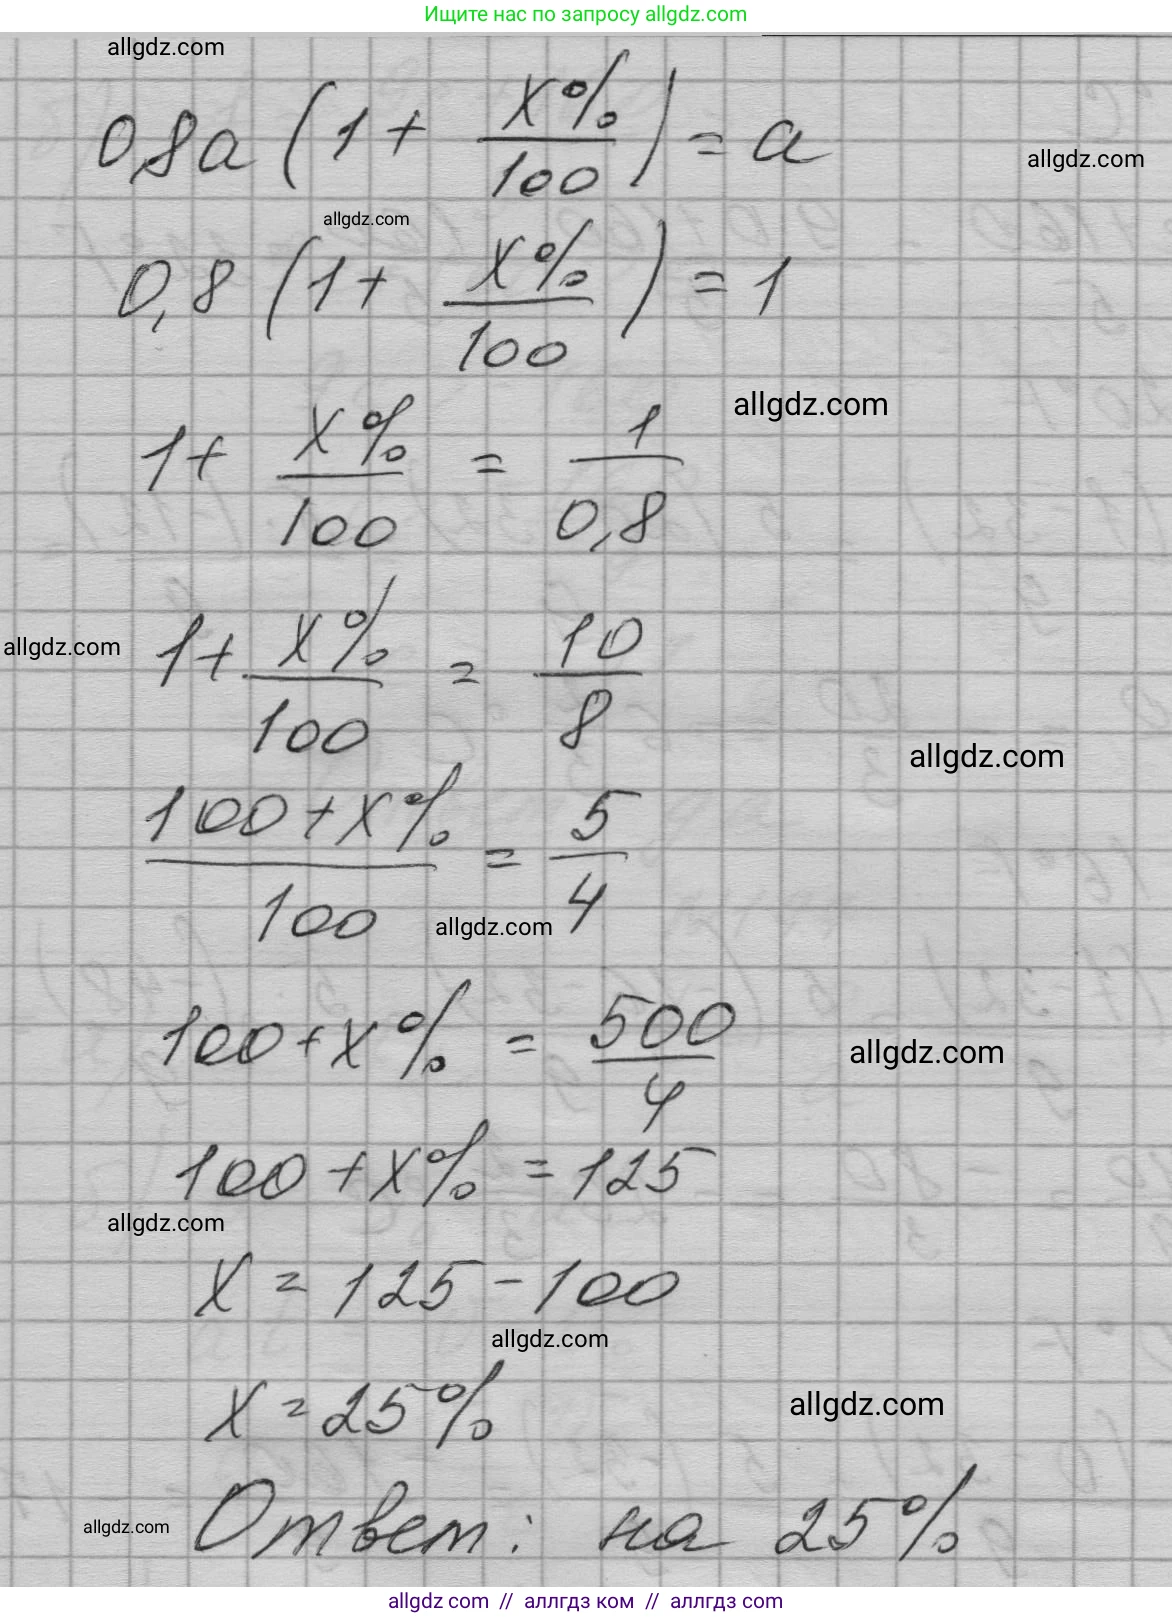 Ищите нас по запросу allgdz.com
allgdz.com
0,8a (1 + x%/100) = a
allgdz.com
allgdz.com
0,8 (1 + x%/100) = 1
allgdz.com
1 + x%/100 = 1/0,8
allgdz.com
1 + x%/100 = 10/8
allgdz.com
100 + x%/100 = 5/4
allgdz.com
100 + x% = 500/4
allgdz.com
100 + x% = 125
allgdz.com
x = 125 - 100
allgdz.com
x = 25%
allgdz.com
Ответ: на 25%
allgdz.com
allgdz.com // аллгдз ком // аллгдз.com